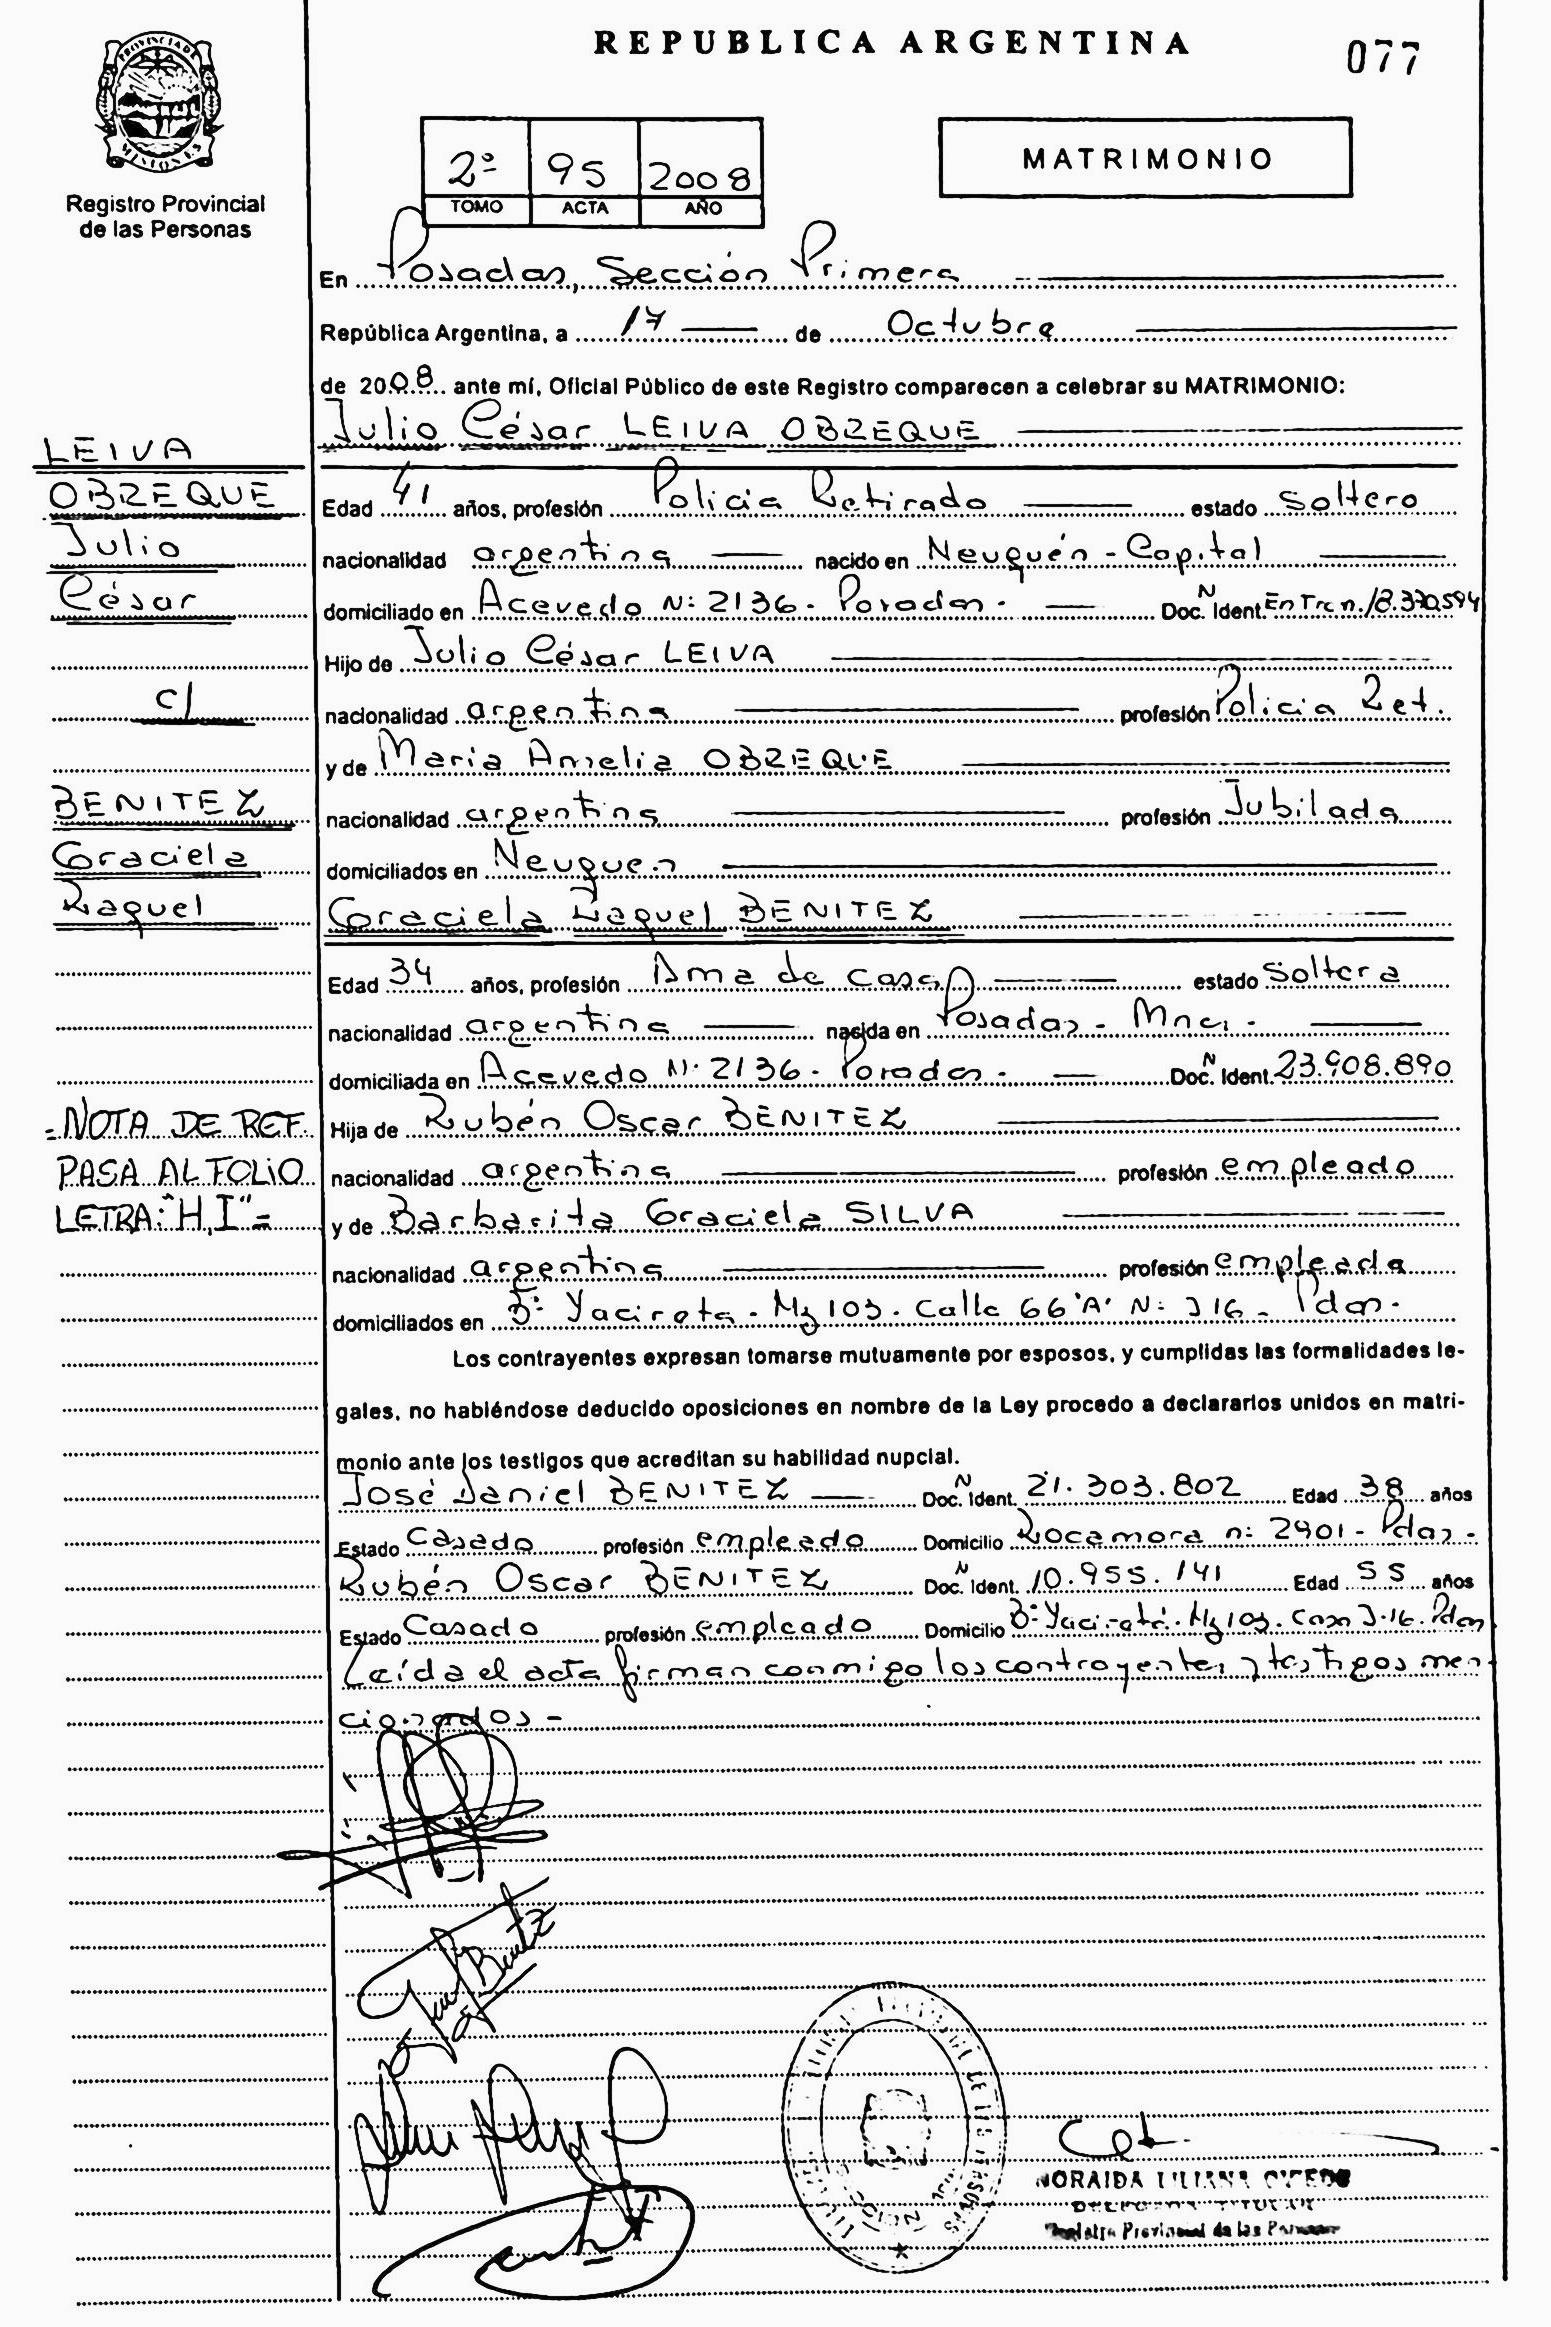 REPUBLICA ARGENTINA
077
PROVINCIA DE
MISIONES
Registro Provincial
de las Personas
2º 95 2008
TOMO ACTA AÑO
MATRIMONIO
En Posadas, Sección Primera
República Argentina, a 17 de Octubre
de 2008 ante mí, Oficial Público de este Registro comparecen a celebrar su MATRIMONIO:
Julio César LEIVA OBREQUE
LEIVA
OBREQUE
Julio
César
c/
BENITEZ
Graciela
Raquel
Edad 41 años, profesión Policia Retirado estado soltero
nacionalidad argentina nacido en Neuquén - Capital
domiciliado en Acevedo Nº 2136 - Posadas - Doc. N Ident. En Trc n. 18.370.594
Hijo de Julio César LEIVA
nacionalidad argentina profesión Policia Ret.
y de Maria Amelia OBREQUE
nacionalidad argentina profesión Jubilada
domiciliados en Neuquen
Graciela Raquel BENITEZ
Edad 34 años, profesión Ama de casa estado soltera
nacionalidad argentina nacida en Posadas - Mnes -
domiciliada en Acevedo Nº 2136 - Posadas - Doc. N Ident. 23.908.890
Hija de Rubén Oscar BENITEZ
nacionalidad argentina profesión empleado
y de Barbarita Graciela SILVA
nacionalidad argentina profesión empleada
domiciliados en Bº Yacireta - Mz 103 - Calle 66 "A" Nº J16 - Pdas -
= NOTA DE REF.
PASA AL FOLIO
LETRA: "H,I" =
Los contrayentes expresan tomarse mutuamente por esposos, y cumplidas las formalidades le-
gales, no habiéndose deducido oposiciones en nombre de la Ley procedo a declararlos unidos en matri-
monio ante los testigos que acreditan su habilidad nupcial.
José Daniel BENITEZ Doc. N Ident. 21.303.802 Edad 38 años
Estado Casado profesión empleado Domicilio Rocamora nº 2901 - Pdas -
Rubén Oscar BENITEZ Doc. N Ident. 10.955.141 Edad 55 años
Estado Casado profesión empleado Domicilio Bº Yacireta - Mz 103 - Casa J-16 - Pdas
Leída el acta firman conmigo los contrayentes y testigos men-
cionados -
NORAIDA LILIANA
Registro Provincial de las Personas